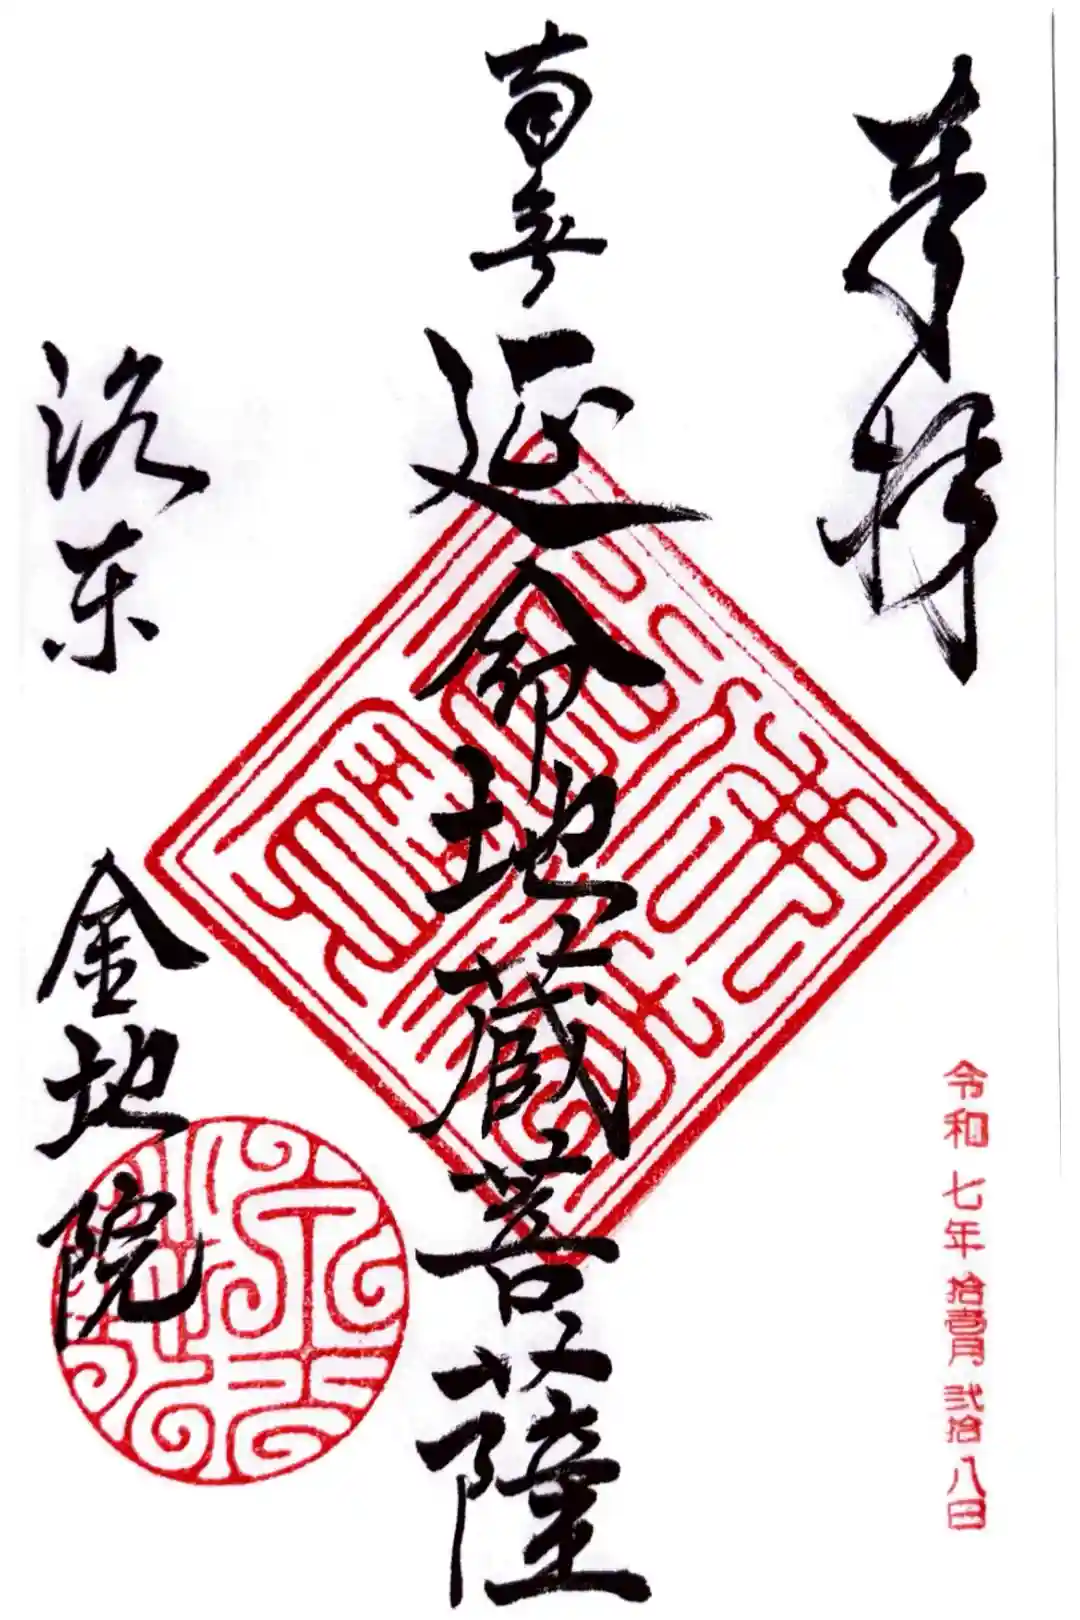 奉拝
令和七年拾壱月弐拾八日
南無延命地蔵菩薩
洛東
金地院